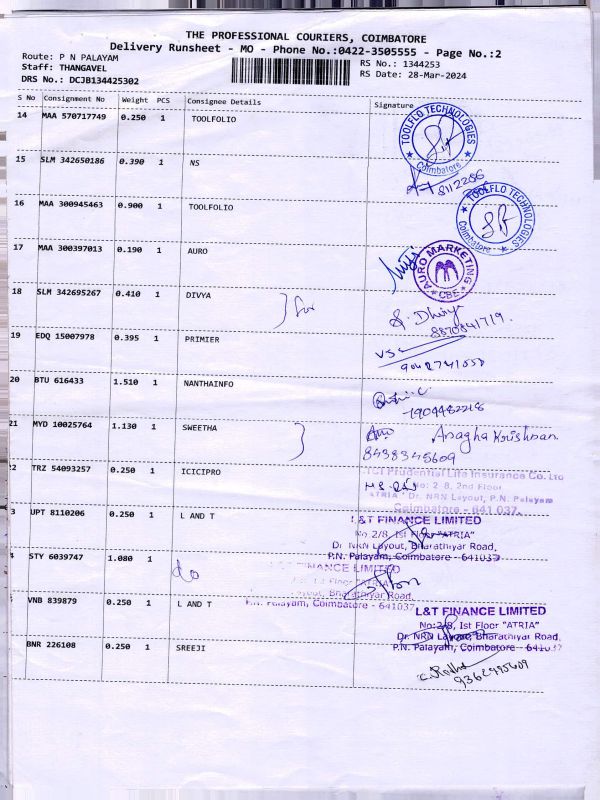 THE PROFESSIONAL COURIERS, COIMBATORE
Delivery Runsheet - MO - Phone No.:0422-3505555 - Page No.:2
Route: P N PALAYAM
Staff: THANGAVEL
DRS No.: DCJB134425302
RS No.: 1344253
RS Date: 28-Mar-2024
S No Consignment No Weight PCS Consignee Details Signature
14 MAA 570717749 0.250 1 TOOLFOLIO
TOOLFLO TECHNOLOGIES
Coimbatore
15 SLM 342650186 0.390 1 NS
8112286
16 MAA 300945463 0.900 1 TOOLFOLIO
TOOLFLO TECHNOLOGIES
Coimbatore
17 MAA 300397013 0.190 1 AURO
AURO MARKETING
CBE
18 SLM 342695267 0.410 1 DIVYA
for
S. Dhivya
8870841719.
19 EDQ 15007978 0.395 1 PRIMIER
20 BTU 616433 1.510 1 NANTHAINFO
7904482218
21 MYD 10025764 1.130 1 SWEETHA
Anagha Krishnan
8438345609
2 TRZ 54093257 0.250 1 ICICIPRO
Prudential Life Insurance Co. Ltd
No: 2-8, 2nd Floor
"ATRIA" Dr. NRN Layout, P.N. Palayam
Coimbatore - 641 037.
3 UPT 8110206 0.250 1 L AND T
L&T FINANCE LIMITED
No.2/8, Ist Floor "ATRIA"
Dr. NRN Layout, Bharathiyar Road,
P.N. Palayam, Coimbatore - 641037
4 STY 6039747 1.080 1
do
FINANCE LIMITED
Ist Floor "ATRIA"
Layout, Bharathiyar Road,
P.N. Palayam, Coimbatore - 641037
VNB 839879 0.250 1 L AND T
L&T FINANCE LIMITED
No:2/8, Ist Floor "ATRIA"
Dr. NRN Layout, Bharathiyar Road,
P.N. Palayam, Coimbatore - 641037
BNR 226108 0.250 1 SREEJI
9362995609